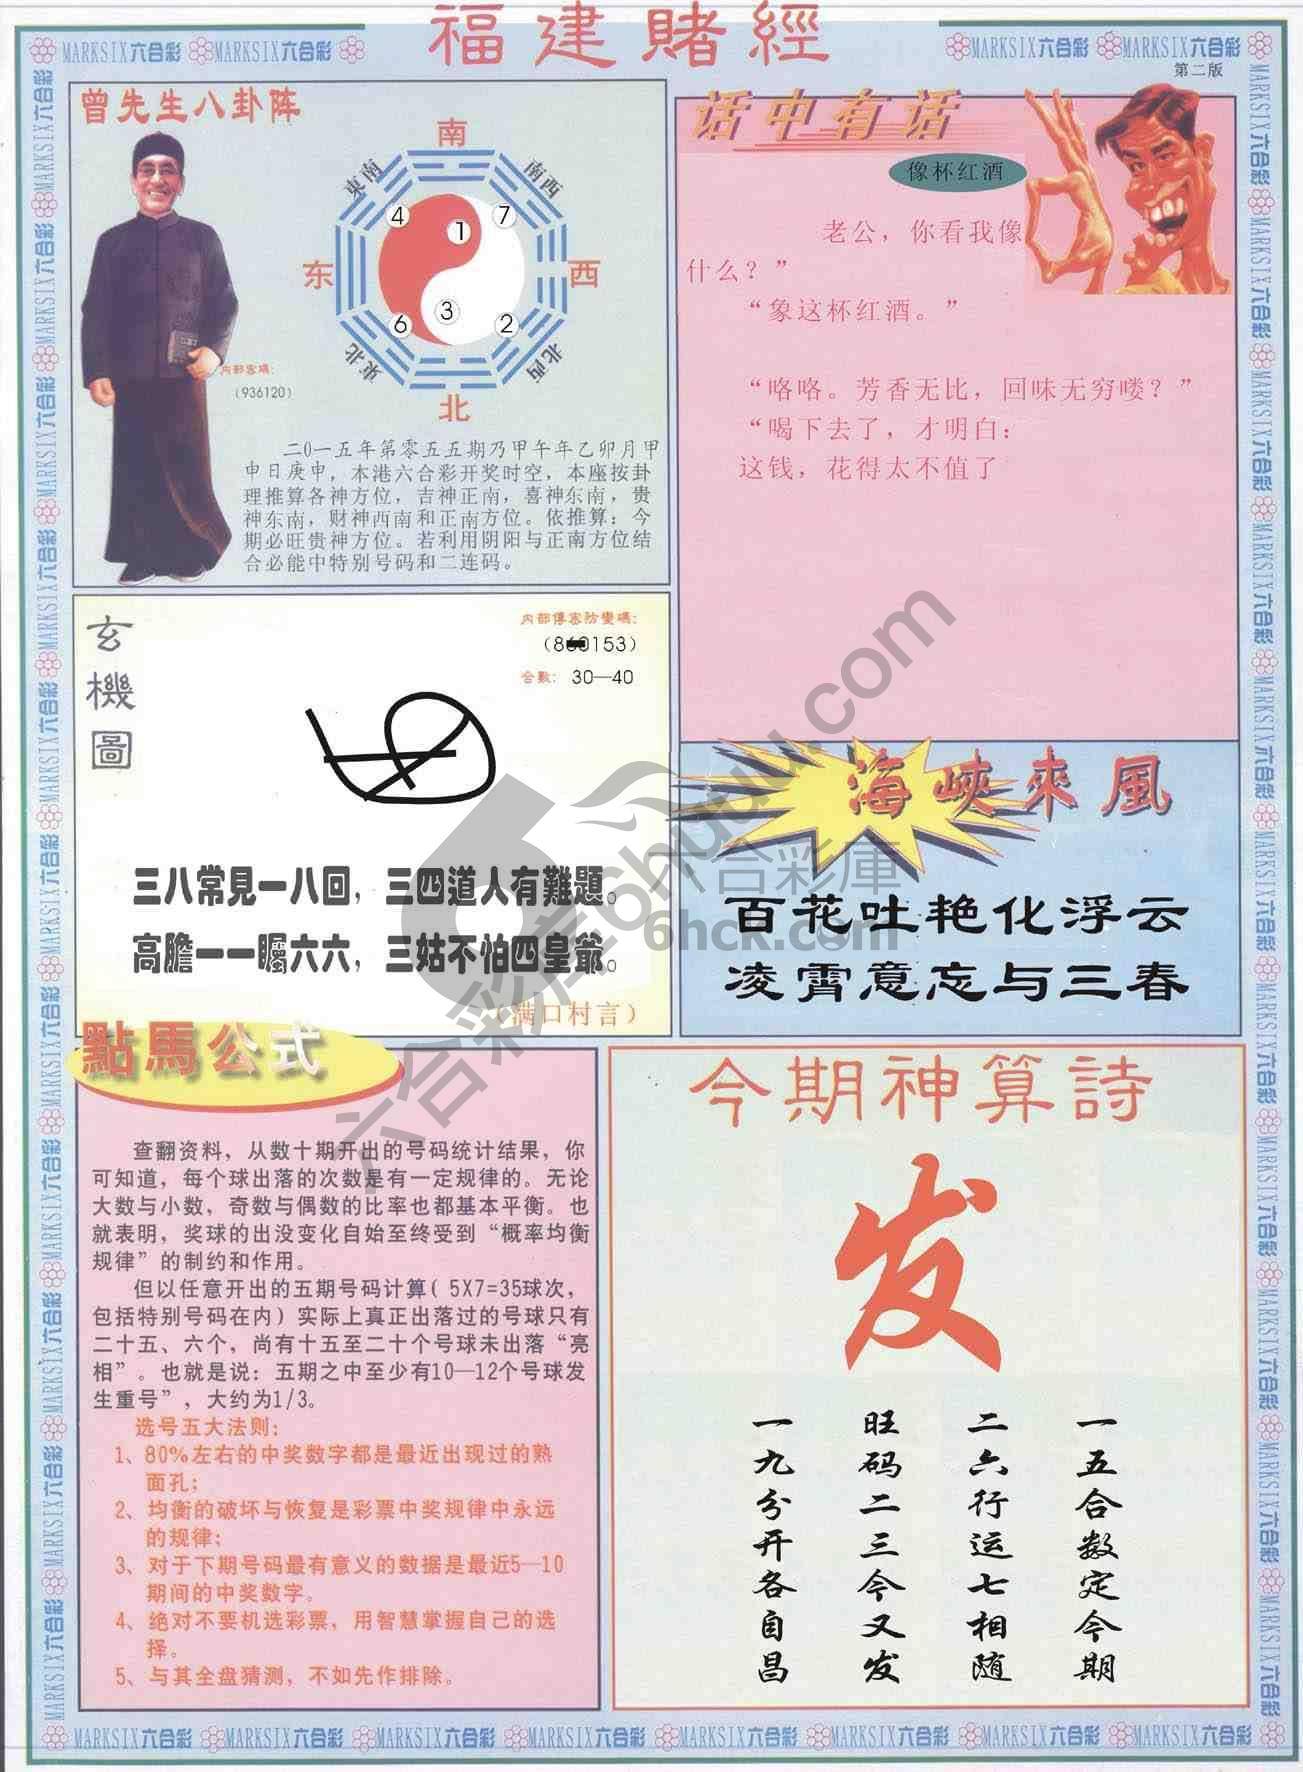 福建賭經
第二版
MARKSIX六合彩 MARKSIX六合彩
MARKSIX六合彩 MARKSIX六合彩
曾先生八卦阵
南
東南
南西
4
1
7
东
西
6
3
2
東北
北西
北
内部密碼:
(936120)
二0一五年第零五五期乃甲午年乙卯月甲
申日庚申,本港六合彩开奖时空,本座按卦
理推算各神方位,吉神正南,喜神东南,贵
神东南,财神西南和正南方位。依推算:今
期必旺贵神方位。若利用阴阳与正南方位结
合必能中特别号码和二连码。
话中有话
像杯红酒
老公,你看我像
什么?”
“象这杯红酒。”
“咯咯。芳香无比,回味无穷喽?”
“喝下去了,才明白:
这钱,花得太不值了
玄機圖
内部傳密防變碼:
0153)
合數: 30—40
三八常見一八回,三四道人有難題。
高膽一一矚六六,三姑不怕四皇爺。
(满口村言)
海峽來風
百花吐艳化浮云
凌霄意忘与三春
點馬公式
查翻资料,从数十期开出的号码统计结果,你
可知道,每个球出落的次数是有一定规律的。无论
大数与小数,奇数与偶数的比率也都基本平衡。也
就表明,奖球的出没变化自始至终受到“概率均衡
规律”的制约和作用。
但以任意开出的五期号码计算( 5X7=35球次,
包括特别号码在内)实际上真正出落过的号球只有
二十五、六个,尚有十五至二十个号球未出落“亮
相”。也就是说:五期之中至少有10—12个号球发
生重号”,大约为1/3。
选号五大法则:
1、80%左右的中奖数字都是最近出现过的熟
面孔;
2、均衡的破坏与恢复是彩票中奖规律中永远
的规律;
3、对于下期号码最有意义的数据是最近5—10
期间的中奖数字。
4、绝对不要机选彩票,用智慧掌握自己的选
择。
5、与其全盘猜测,不如先作排除。
今期神算詩
发
一五合数定今期
二六行运七相随
旺码二三今又发
一九分开各自昌
六合彩库6hcuu.com
六合彩庫
6hck.com
MARKSIX六合彩 MARKSIX六合彩 MARKSIX六合彩 MARKSIX六合彩 MARKSIX六合彩 MARKSIX六合彩 MARKSIX六合彩 MARKSIX六合彩